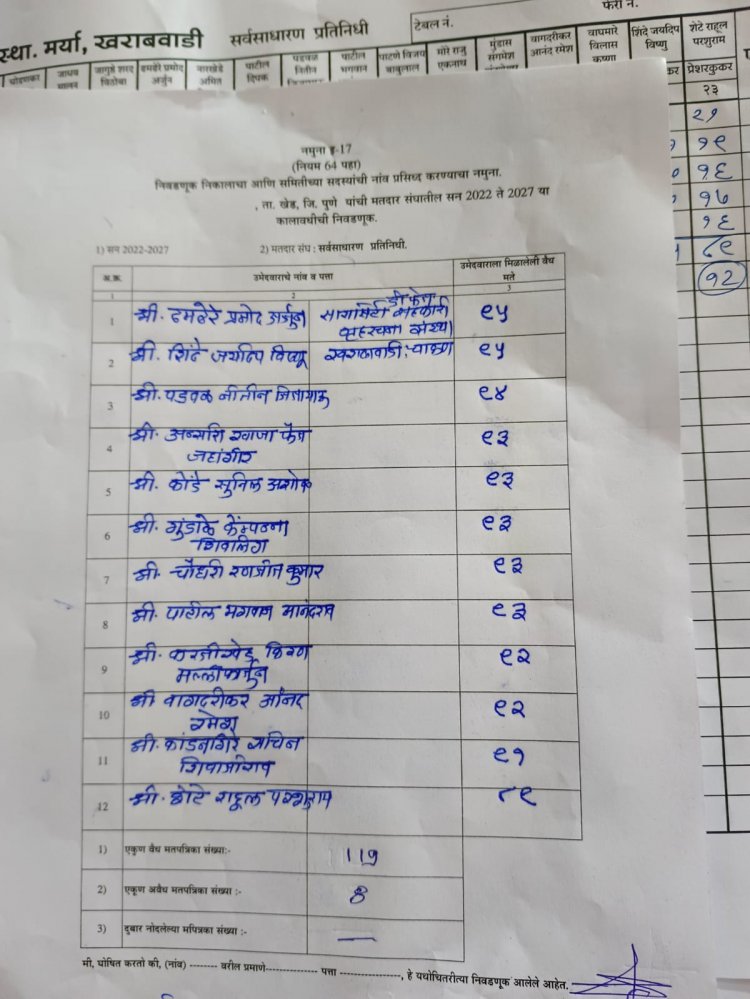 फेरी नं.
टेबल नं.
स्था. मर्या, खराबवाडी सर्वसाधारण प्रतिनिधी
जाधव
जागृष्टे शरद विठोबा
ढमढेरे प्रमोद अर्जुन
नारखेडे अमित
पाटील दिपक
पडवळ नितीन
पाटील भगवान
पाटणे विजय बाबुलाल
मोरे राजु एकनाथ
मुंडास संगमेश
वागदरीकर आनंद रमेश
वाघमारे विलास कृष्णा
शिंदे जयदिप विष्णु
शेटे राहूल परशुराम
प्रेशरकुकर
२३
२१
१९
१६
१७
१६
८९
१२
नमुना इ-17
(नियम 64 पहा)
निवडणूक निकालाचा आणि समितीच्या सदस्यांची नांव प्रसिध्द करण्याचा नमुना.
, ता. खेड, जि. पुणे यांची मतदार संघातील सन 2022 ते 2027 या
कालावधीची निवडणूक.
1) सन 2022-2027 2) मतदार संघ : सर्वसाधारण प्रतिनिधी.
अ.क्र. उमेदवाराचे नांव व पत्ता उमेदवाराला मिळालेली वैध मते
1 2 3
1 श्री. ढमढेरे प्रमोद अर्जुन सारासिटी डी फेज सहकारी गृहरचना संस्था ९५
2 श्री. शिंदे जयदिप विष्णू खराबवाडी, चाकण ९५
3 श्री. पडवळ नीतीन विनायक ९४
4 श्री. अन्सारी ख्वाजा फैज
जहांगीर ९३
5 श्री. कोंडे सुनिल अशोक ९३
6 श्री. गुंडाळे केंम्पन्ना
शिवलिंग ९३
7 श्री. चौधरी रणजीत कुमार ९३
8 श्री. पाटील भगवान आनंदराव ९३
9 श्री. करजीखेडे किरण
मल्लीकार्जुन ९२
10 श्री वागदरीकर आंनद
रमेश ९२
11 श्री. कांडनगिरे सचिन
शिवाजीराव ९१
12 श्री. शेटे राहूल परशुराम ८९
1) एकूण वैध मतपत्रिका संख्या:- 119
2) एकूण अवैध मतपत्रिका संख्या :- 8
3) दुबार नोदलेल्या मपित्रका संख्या :- —
मी, घोषित करतो की, (नांव) -------- वरील प्रमाणे--------------- पत्ता ----------------, हे यथोचितरीत्या निवडणूक आलेले आहेत.